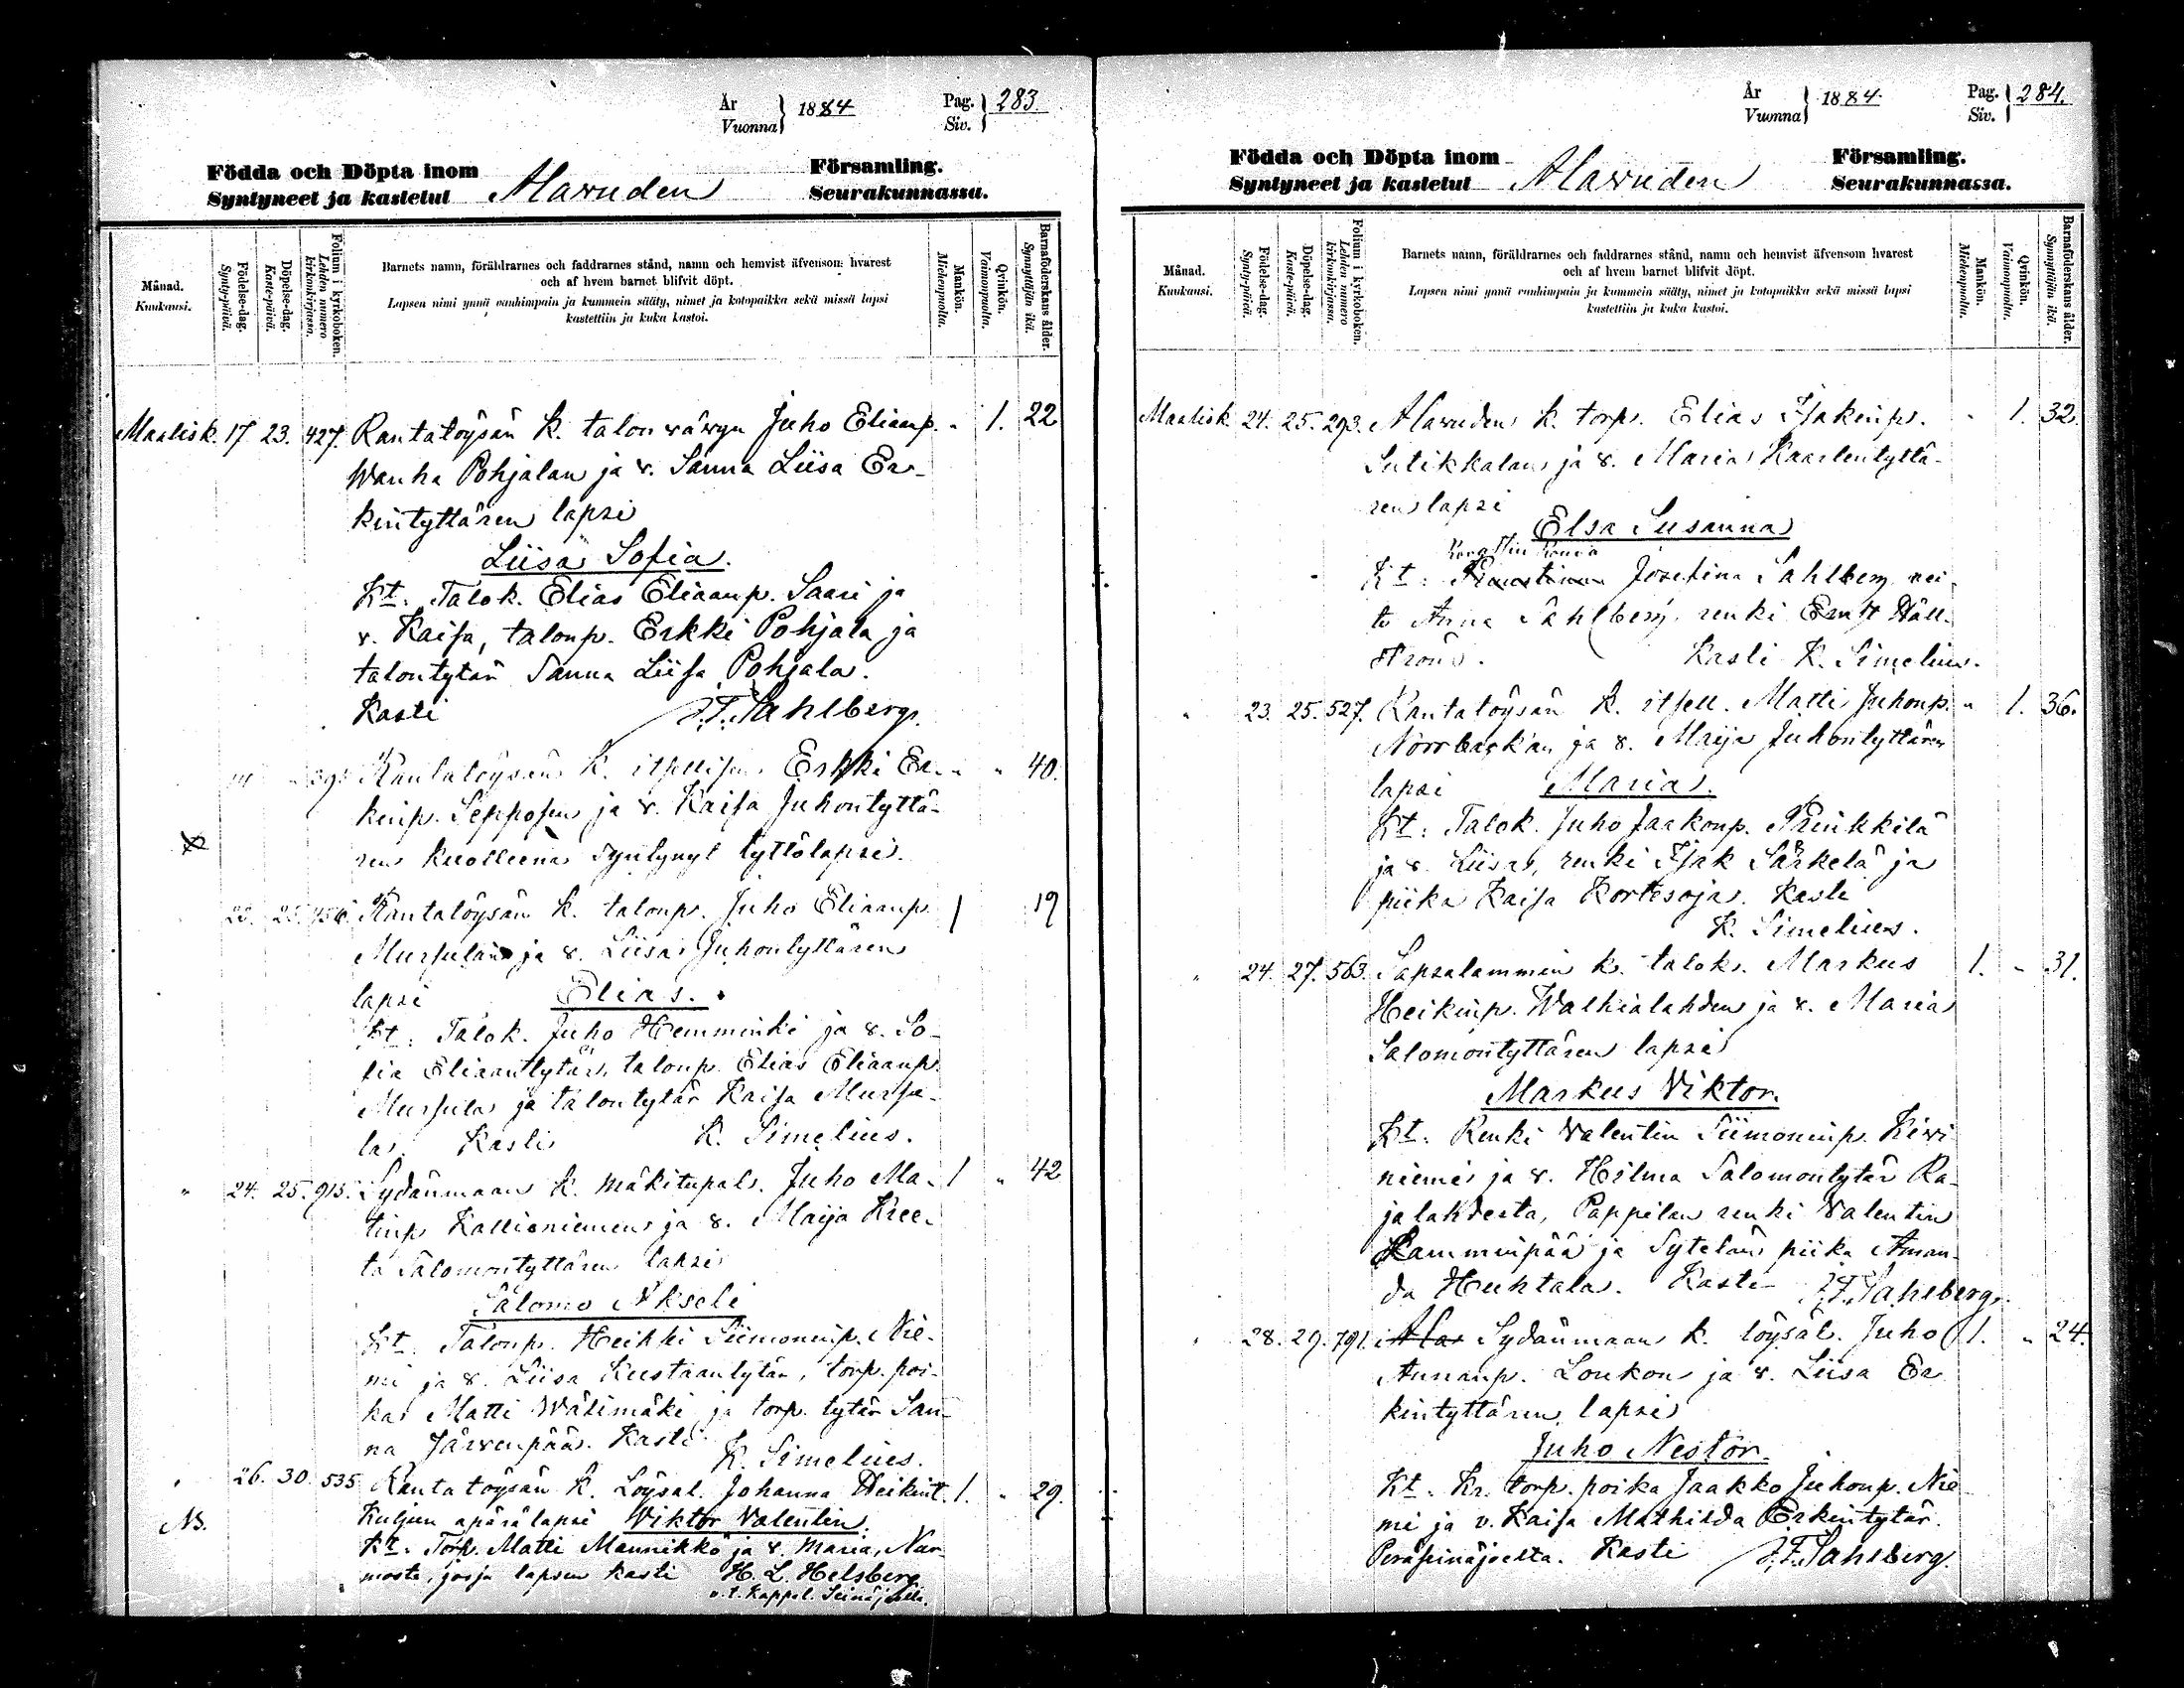 År
Vuonna
1884
Pag.
Siv.
283.
Födda och Döpta inom
Syntyneet ja kastetut
Alavuden
Församling.
Seurakunnassa.
Månad.
Kuukausi.
Födelse-dag.
Synty-päivä.
Döpelse-dag.
Kaste-päivä.
Folium i kyrkoboken.
Lehden numero kirkonkirjassa.
Barnets namn, föräldrarnes och faddrarnes stånd, namn och hemvist äfvensom hvarest
och af hvem barnet blifvit döpt.
Lapsen nimi ynnä vanhimpain ja kummein sääty, nimet ja kotopaikka sekä missä lapsi
kastettiin ja kuka kastoi.
Mankön.
Miehenpuolta.
Qvinkön.
Vaimonpuolta.
Barnaföderskans ålder.
Synnyttäjän ikä.
Maalisk. 17 23. 427. Rantatöysän k. talon vävyn Juho Elianp. " 1. 22
Wanha Pohjalan ja v. Sanna Liisa Er-
kintyttären lapsi
Liisa Sofia.
Kt: Talok. Elias Eliaanp. Saari ja
v. Kaisa, talonp. Erkki Pohjala ja
talontytär Sanna Liisa Pohjala.
Kasti J.F. Sahlberg.
Rantatöysän k. itsellisen Erkki Er- " " 40.
kinp. Sepposen ja v. Kaisa Juhontyttä-
ren kuolleena syntynyt tyttölapsi.
23. 25. 456. Rantatöysän k. talonp. Juho Eliaanp. 1 19
Mursulan ja v. Liisa Juhontyttären
lapsi Elias.
Kt: Talok. Juho Hemminki ja v. So-
fia Eliaantytär, talonp. Elias Eliaanp.
Mursula ja talontytär Kaisa Mursu-
la. Kasti K. Simelius.
" 24. 25. 915. Sydänmaan k. mäkitupal. Juho Ma- 1 " 42
tinp. Kallioniemen ja v. Maija Kree-
ta Salomontyttären lapsi
Salomo Akseli
Kt. Talonp. Heikki Siimoninp. Nie-
mi ja v. Liisa Kustaantytär, torp. poi-
ka Matti Wäsimäki ja torp. tytär San-
na Järvenpää. Kasti K. Simelius.
" 26. 30. 535 Rantatöysän k. Löysäl. Johanna Heikint. 1. " 29.
NB. Kuljun äpärälapsi Viktor Valentin.
Kt: Torp. Matti Mannikkö ja v. Maria, Nur-
mosta, josja lapsen kasti H. L. Helsberg
v.t. Kappal. Seinäjoella.
År
Vuonna
1884.
Pag.
Siv.
284.
Födda och Döpta inom
Syntyneet ja kastetut
Alavuden
Församling.
Seurakunnassa.
Månad.
Kuukausi.
Födelse-dag.
Synty-päivä.
Döpelse-dag.
Kaste-päivä.
Folium i kyrkoboken.
Lehden numero kirkonkirjassa.
Barnets namn, föräldrarnes och faddrarnes stånd, namn och hemvist äfvensom hvarest
och af hvem barnet blifvit döpt.
Lapsen nimi ynnä vanhimpain ja kummein sääty, nimet ja kotopaikka sekä missä lapsi
kastettiin ja kuka kastoi.
Mankön.
Miehenpuolta.
Qvinkön.
Vaimonpuolta.
Barnaföderskans ålder.
Synnyttäjän ikä.
Maalisk. 24. 25. 293. Alavuden k. torp. Elias Isakinp. " 1. 32.
Sutikkalan ja v. Maria Kaarlentyttä-
ren lapsi
Elsa Susanna
Kt: Josefina Sahlberg, nei-
to Anna Sahlberg, renki Ernst Häll-
ström. Kasti K. Simelius.
" 23. 25. 527. Rantatöysän k. itsell. Matti Juhonp. " 1. 36.
Norrbackan ja v. Maija Juhontyttären
lapsi Maria.
Kt: Talok. Juho Jaakonp. Prinkkilä
ja v. Liisa, renki Isak Särkelä ja
piika Kaisa Kortesoja. Kasti
K. Simelius.
" 24. 27. 563. Sapsalammin k. talok. Markus 1. " 31.
Heikinp. Walkialahden ja v. Maria
Salomontyttären lapsi
Markus Viktor.
Kt: Renki Valentin Siimoninp. Kivi-
niemi ja v. Hilma Salomontytär Ra-
jalahdesta, Pappilan renki Valentin
Lamminpää ja Sytelän piika Aman-
da Huhtala. Kasti J.F. Sahlberg.
" 28. 29. 791. Ala Sydänmaan k. löysäl. Juho 1. " 24.
Annanp. Loukon ja v. Liisa Er-
kintyttären lapsi
Juho Nestor.
Kt. Kr. torp. poika Jaakko Juhonp. Nie-
mi ja v. Kaisa Mathilda Erkintytär.
Peräseinäjoelta. Kasti J.F. Sahlberg.